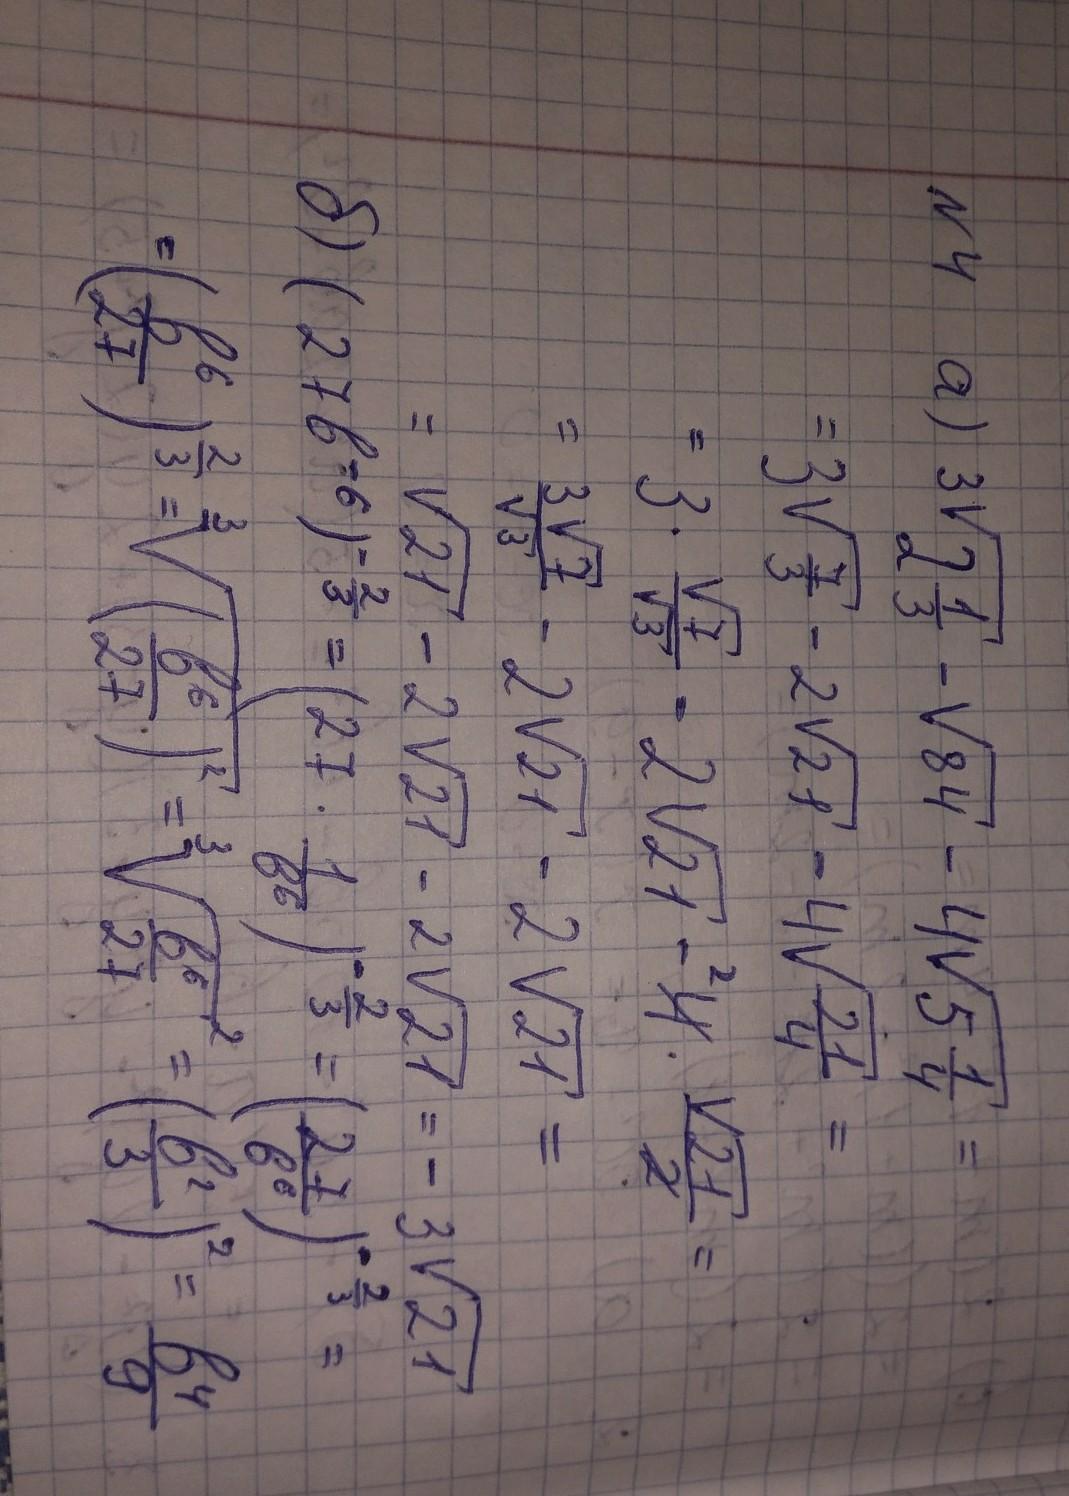 N4 а) 3√(2 1/3) - √84 - 4√(5 1/4) =
= 3√(7/3) - 2√21 - 4√(21/4) =
= 3 · √7/√3 - 2√21 - ²4 · √21/2 =
= 3√7/√3 - 2√21 - 2√21 =
= √21 - 2√21 - 2√21 = -3√21
б) (27b⁻⁶)^(-2/3) = (27 · 1/b⁶)^(-2/3) = (27/b⁶)^(-2/3) =
= (b⁶/27)^(2/3) = ∛((b⁶/27)²) = ∛(b⁶/27)² = (b²/3)² = b⁴/9